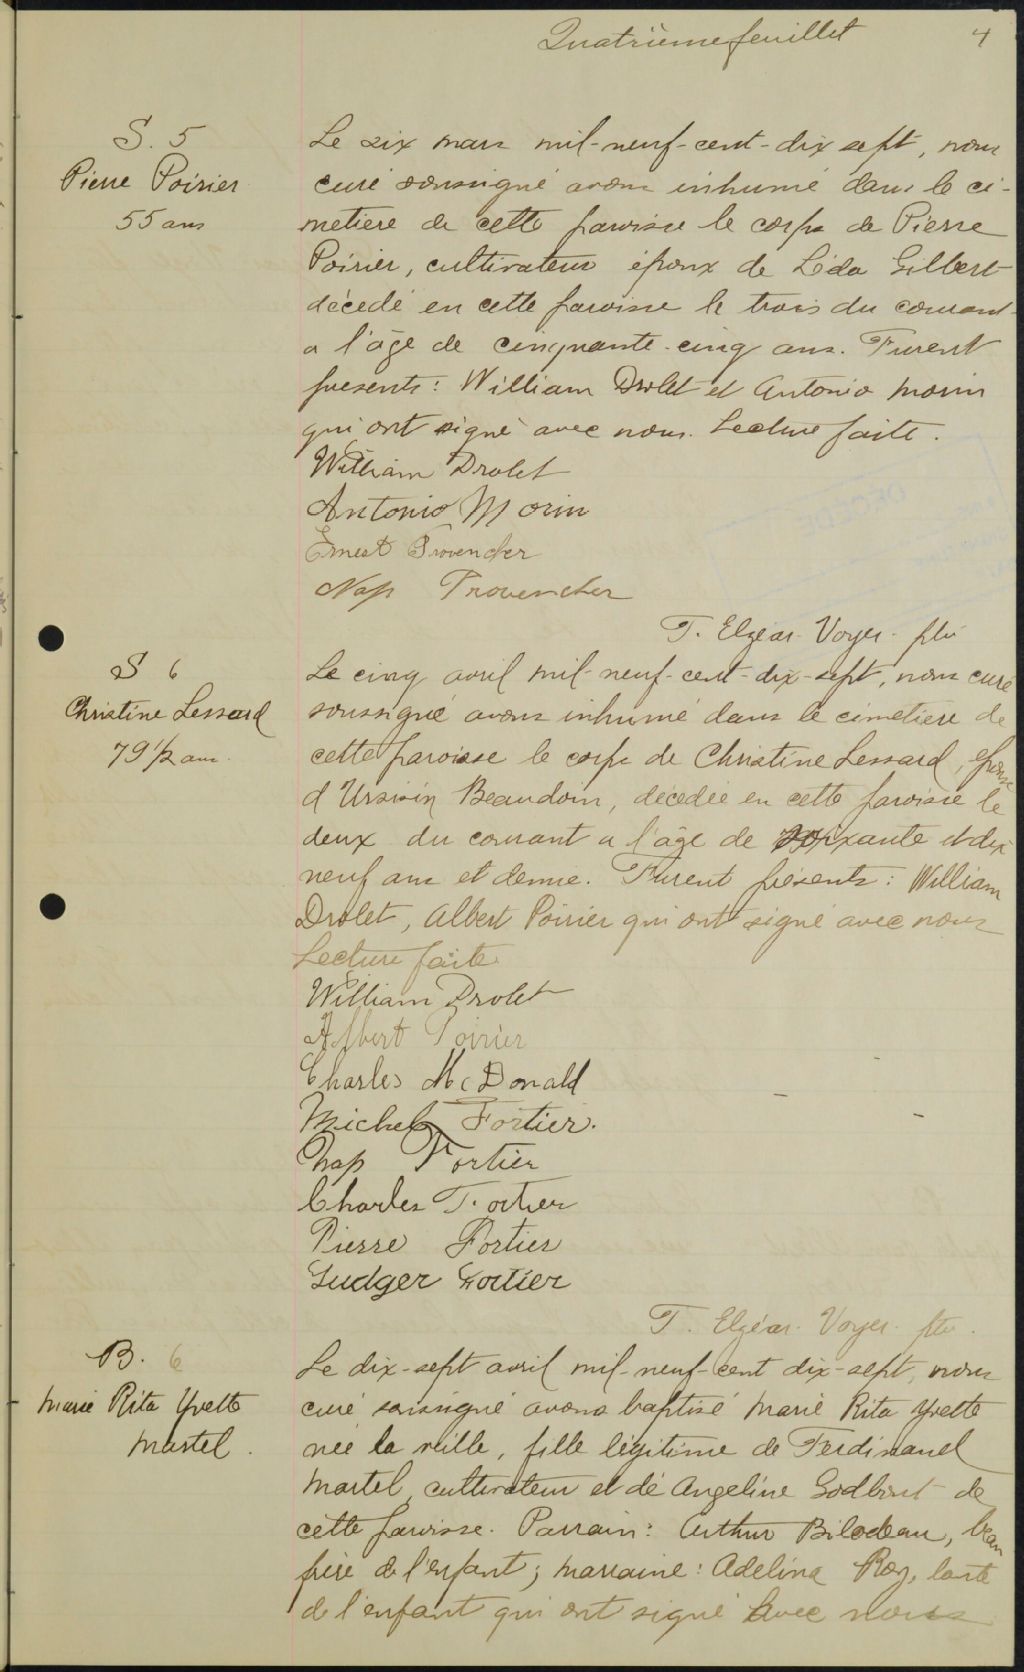 Quatrième feuillet 4
S. 5
Pierre Poirier
55 ans
Le six mars mil-neuf-cent-dix sept, nous
curé soussigné avons inhumé dans le ci-
metiere de cette paroisse le corps de Pierre
Poirier, cultivateur époux de Léda Gilbert
décédé en cette paroisse le trois du courant
a l'âge de cinquante-cinq ans. Furent
presents: William Drolet et Antonio Morin
qui ont signé avec nous. Lecture faite.
William Drolet
Antonio Morin
Ernest Provencher
Nap Provencher
T. Elzéar Voyer ptre
S 6
Christine Lessard
79 1/2 ans.
Le cinq avril mil-neuf-cent-dix-sept, nous curé
soussigné avons inhumé dans le cimetiere de
cette paroisse le corps de Christine Lessard, épouse
d'Ursisin Beaudoin, décedée en cette paroisse le
deux du courant a l'âge de soixante et dix
neuf ans et demie. Furent présents: William
Drolet, Albert Poirier qui ont signé avec nous
Lecture faite.
William Drolet
Albert Poirier
Charles McDonald
Michel Fortier.
Nap Fortier
Charles Fortier
Pierre Fortier
Gudger Fortier
T. Elzéar Voyer ptre.
B. 6
Marie Rita Yvette
Martel.
Le dix-sept avril mil-neuf-cent dix-sept, nous
curé soussigné avons baptisé Marie Rita Yvette
née la veille, fille légitime de Ferdinand
Martel, cultivateur et de Angeline Godbout de
cette paroisse. Parrain: Arthur Bilodeau, beau
frère de l'enfant; marraine: Adelina Roy, tante
de l'enfant qui ont signé avec nous